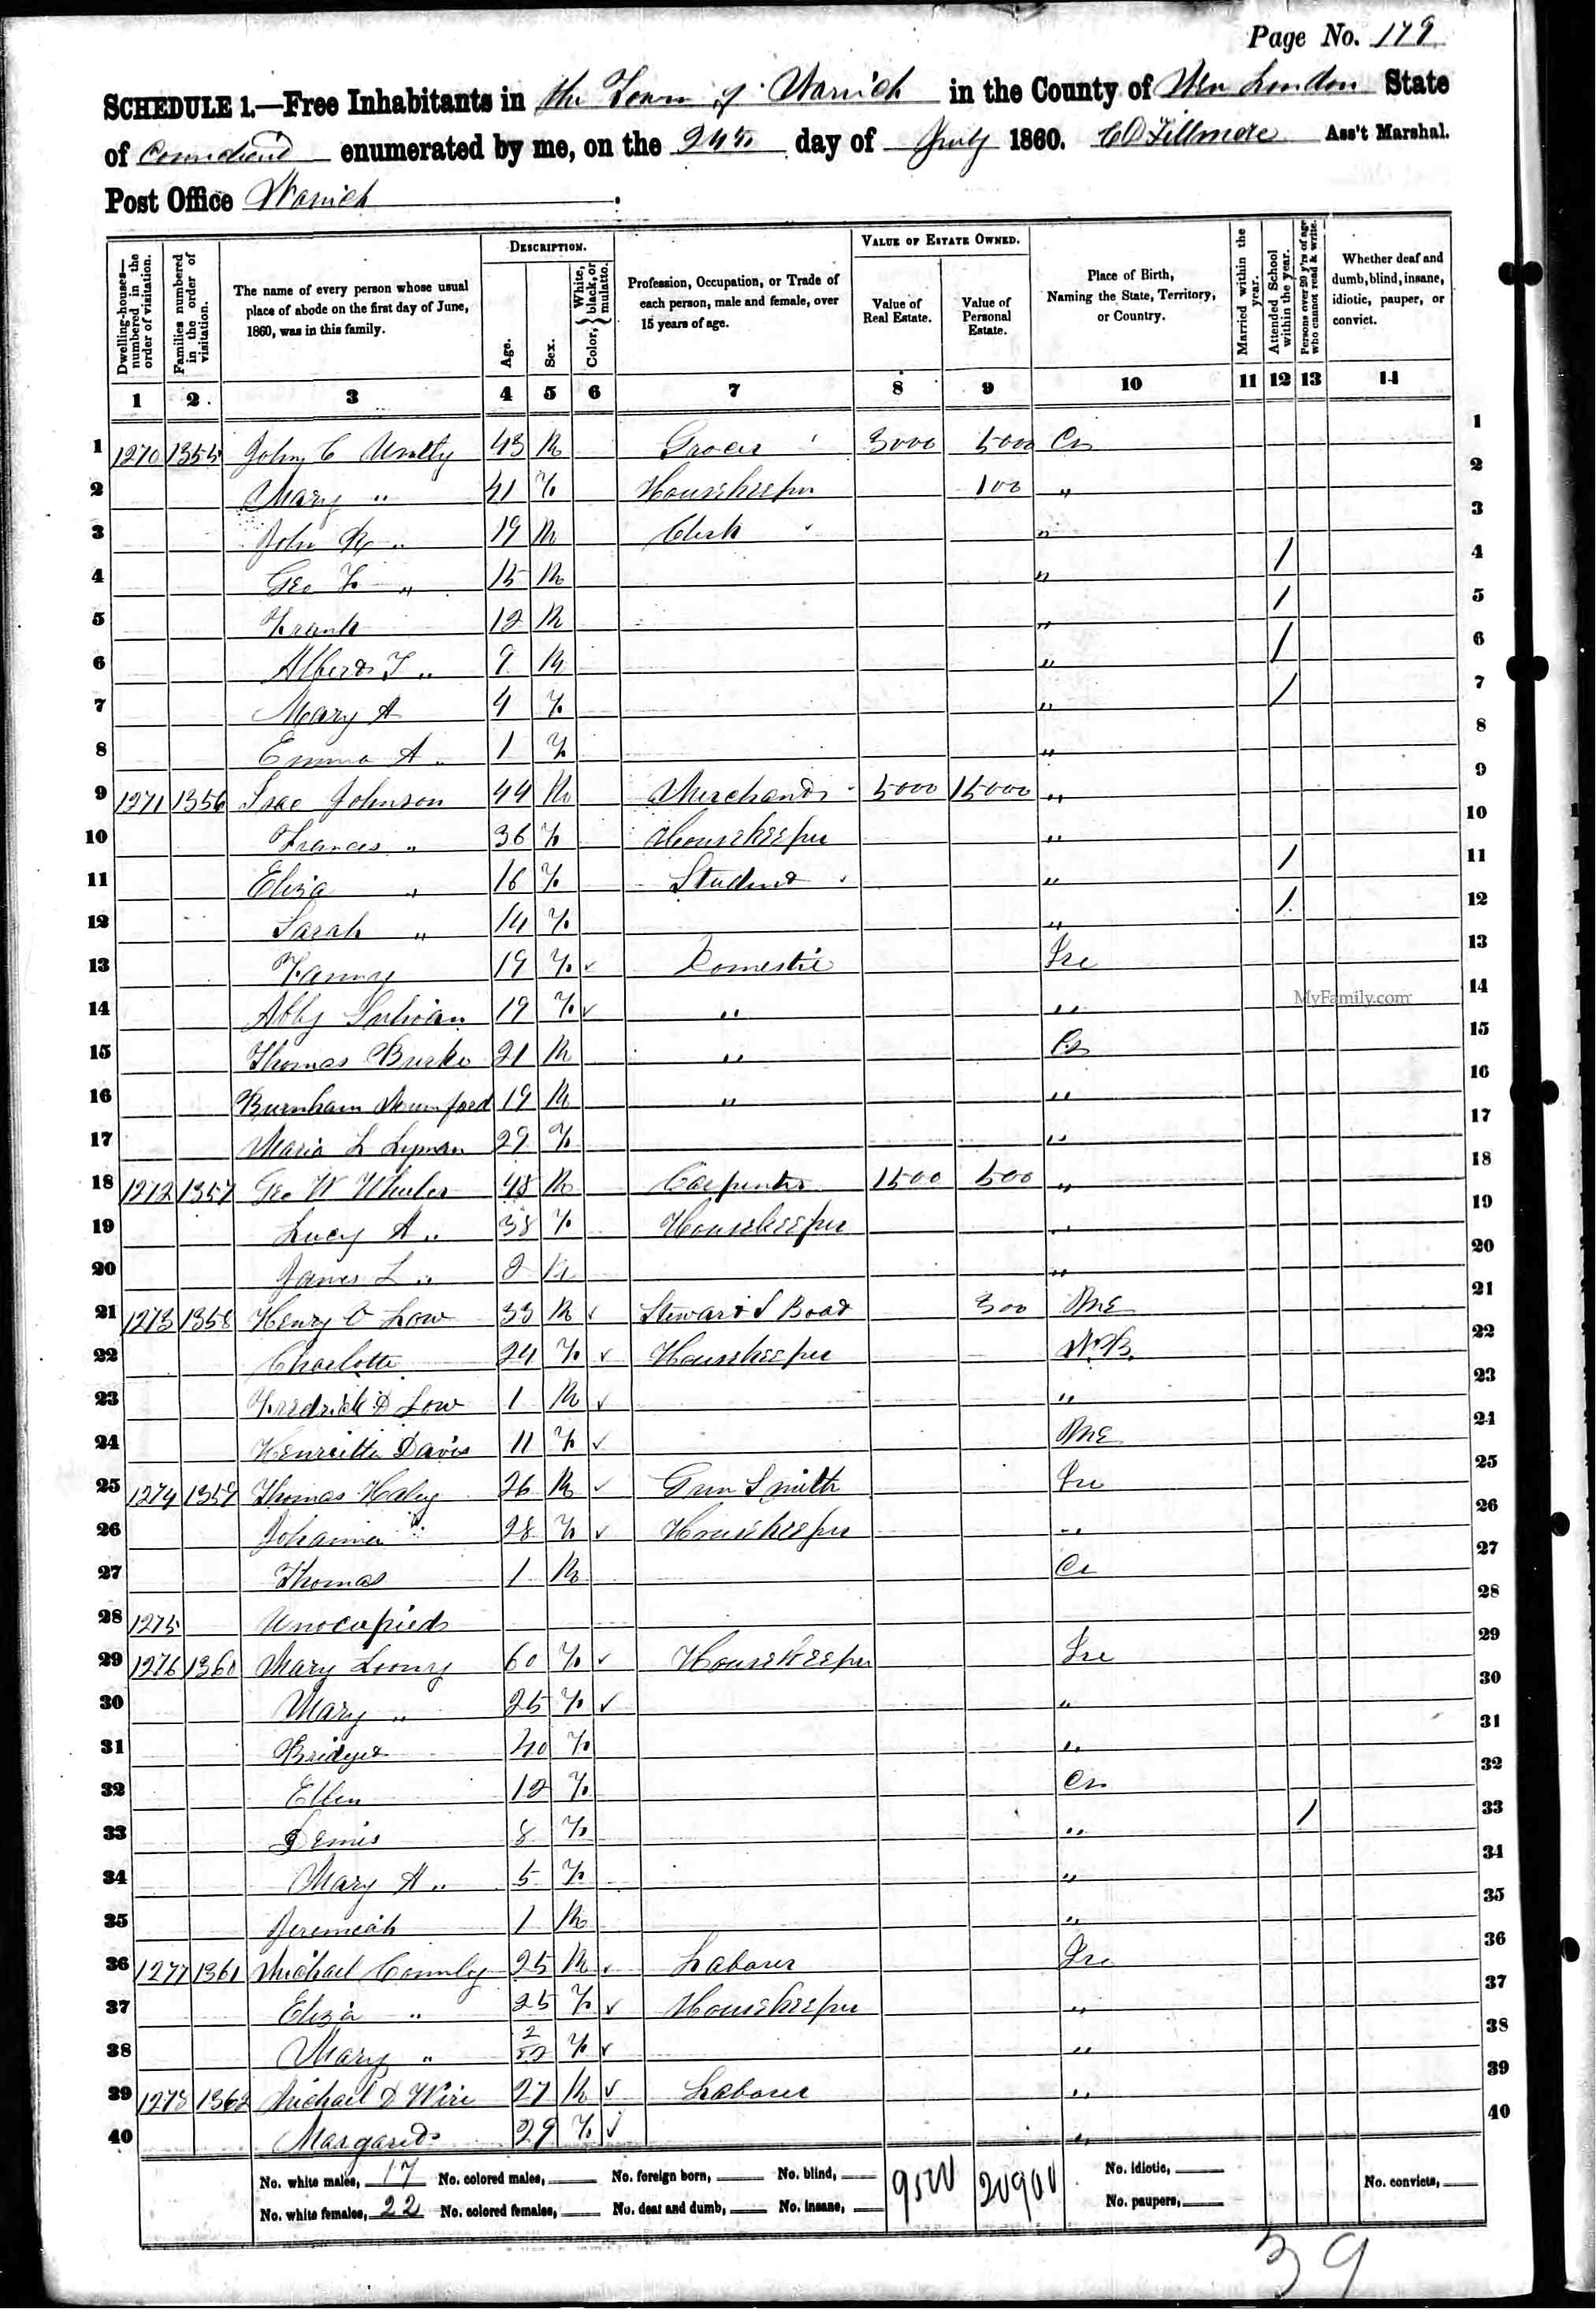 Page No. 179
SCHEDULE 1.—Free Inhabitants in the Town of Norwich in the County of New London State
of Connecticut enumerated by me, on the 24th day of July 1860. C D Fillmore Ass't Marshal.
Post Office Norwich
Dwelling-houses—numbered in the order of visitation.
Families numbered in the order of visitation.
The name of every person whose usual place of abode on the first day of June, 1860, was in this family.
DESCRIPTION.
Age.
Sex.
Color, White, black, or mulatto.
Profession, Occupation, or Trade of each person, male and female, over 15 years of age.
VALUE OF ESTATE OWNED.
Value of Real Estate.
Value of Personal Estate.
Place of Birth, Naming the State, Territory, or Country.
Married within the year.
Attended School within the year.
Persons over 20 y'rs of age who cannot read & write.
Whether deaf and dumb, blind, insane, idiotic, pauper, or convict.
1 2 3 4 5 6 7 8 9 10 11 12 13 14
1 1270 1355 John C 43 M Grocer 3000 5000 Ct 1
2 Mary " 41 F Housekeeper 100 " 2
3 John " 19 M Clerk " 3
4 Geo F " 15 M " / 4
5 Frank 12 M " / 5
6 Albert T " 9 M " / 6
7 Mary A 4 F " / 7
8 Emma A " 1 F " 8
9 1271 1356 Isac Johnson 44 M Merchant 5000 15000 " 9
10 Frances " 36 F Housekeeper " 10
11 Eliza " 16 F Student " / 11
12 Sarah " 14 F " / 12
13 Fanny 19 F ✓ Domestic Ire 13
14 Abby Sulivan 19 F ✓ " " 14
MyFamily.com
15 Thomas Burke 21 M " Ct 15
16 Burnham Mumford 19 M " " 16
17 Maria L Lyman 29 F " 17
18 1272 1357 Geo W Wheeler 48 M Carpenter 1500 500 " 18
19 Lucy A " 38 F Housekeeper " 19
20 James L " 2 M " 20
21 1273 1358 Henry O Low 33 M ✓ Steward S Boat 300 ME 21
22 Charlotte 24 F ✓ Housekeeper N.B. 22
23 Fredrick D Low 1 M ✓ " 23
24 Henriette Davis 11 F ✓ ME 24
25 1274 1359 Thomas Haley 26 M ✓ Gun Smith Ire 25
26 Johanna " 28 F ✓ Housekeeper " 26
27 Thomas 1 M Ct 27
28 1275 Unocupied 28
29 1276 1360 Mary Loony 60 F ✓ Housekeeper Ire 29
30 Mary " 25 F ✓ " 30
31 Bridget 40 F " 31
32 Ellen 12 F Ct 32
33 Denis 8 F " / 33
34 Mary A " 5 F " 34
35 Jeremiah 1 M " 35
36 1277 1361 Michael Connly 25 M ✓ Laborer Ire 36
37 Eliza " 25 F ✓ Housekeeper " 37
38 Mary " F ✓ " 38
39 1278 1362 Michael D Wire 27 M ✓ Laborer " 39
40 Margaret 29 F ✓ " 40
No. white males, 17 No. colored males, No. foreign born, No. blind, 9500 20900 No. idiotic, No. convicts,
No. white females, 22 No. colored females, No. deaf and dumb, No. insane, No. paupers,
39